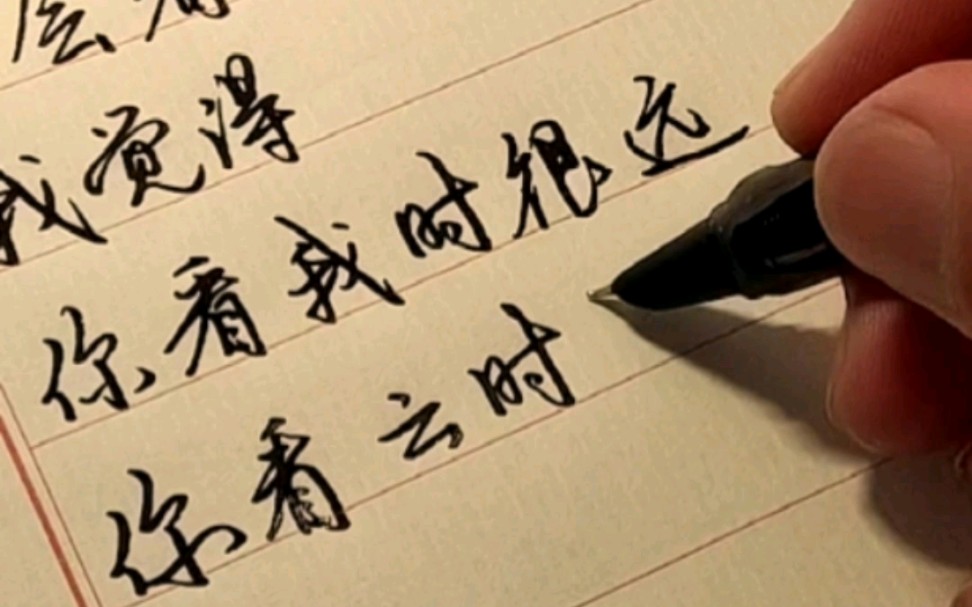 会看
我觉得
你看我时很远
你看云时